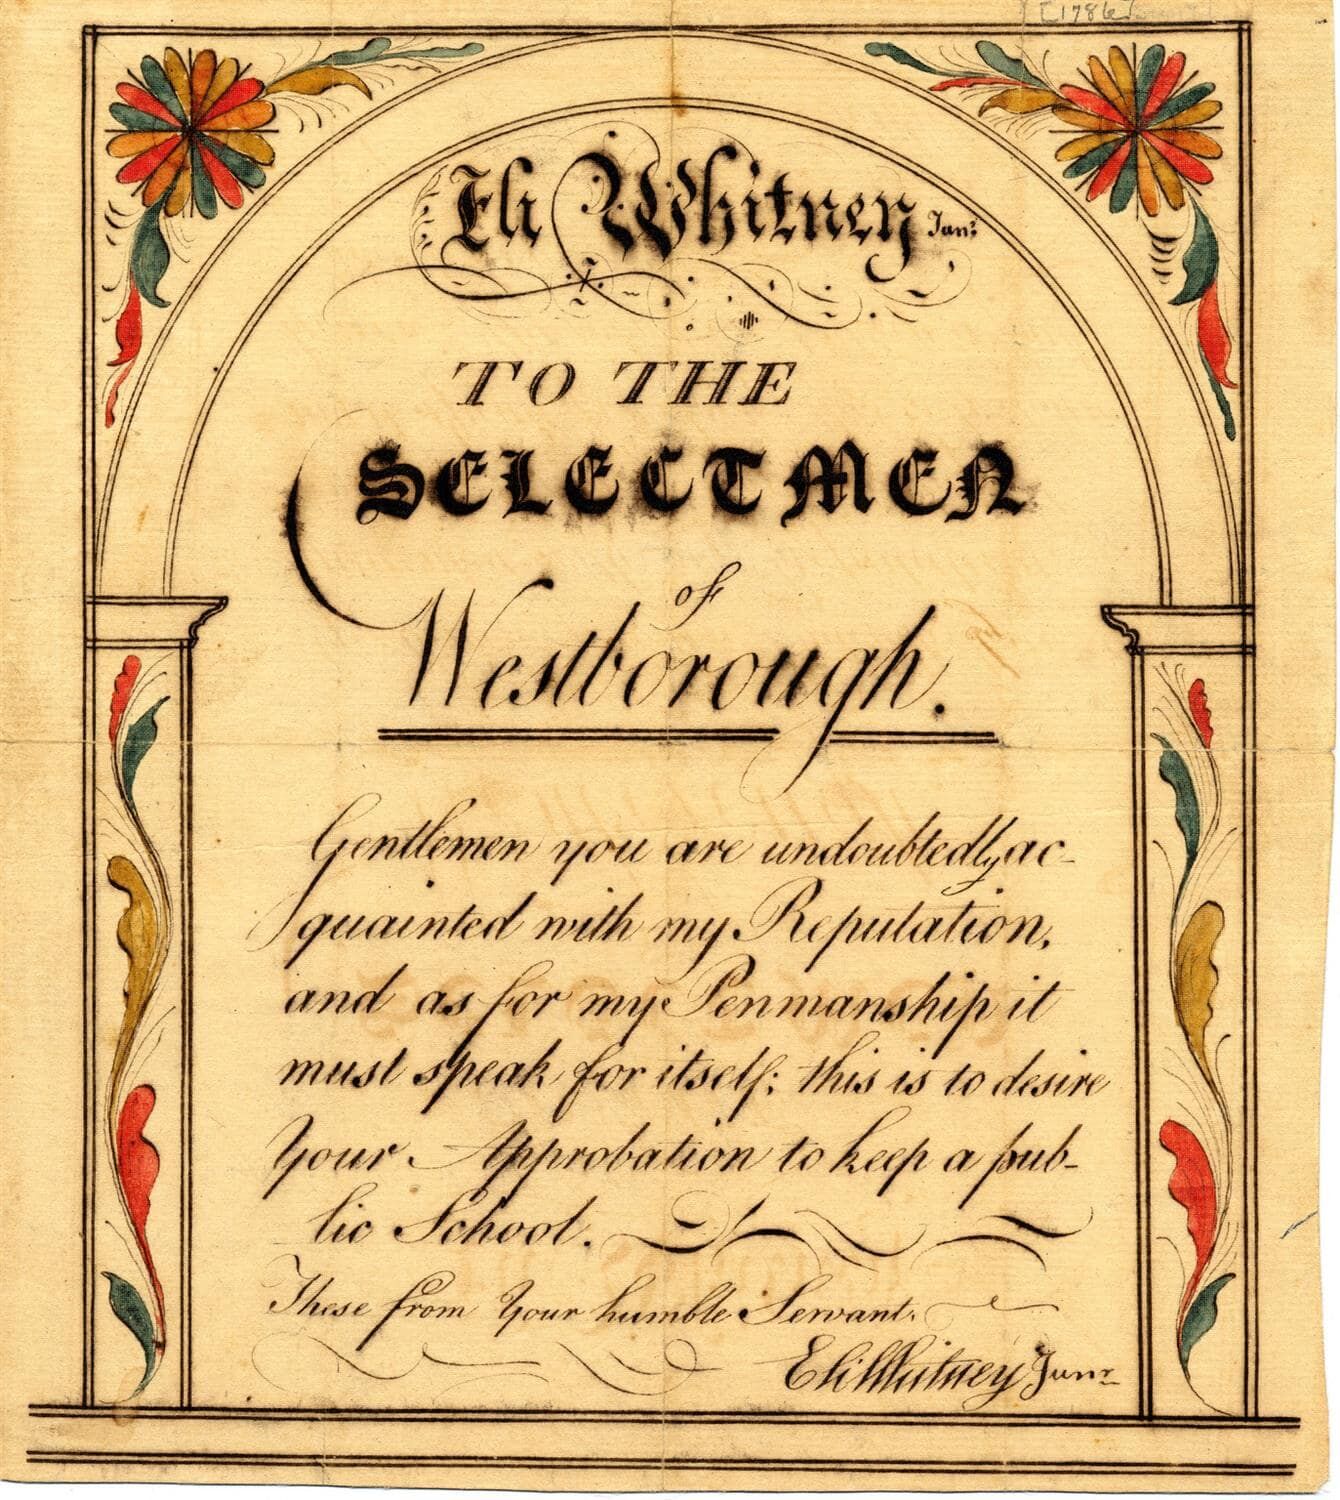 [1786]
Eli Whitney Junr
TO THE
SELECTMEN
of
Westborough.
Gentlemen you are undoubtedly ac-
quainted with my Reputation,
and as for my Penmanship it
must speak for itself; this is to desire
Your Approbation to keep a pub-
lic School.
These from Your humble Servant.
Eli Whitney Junr